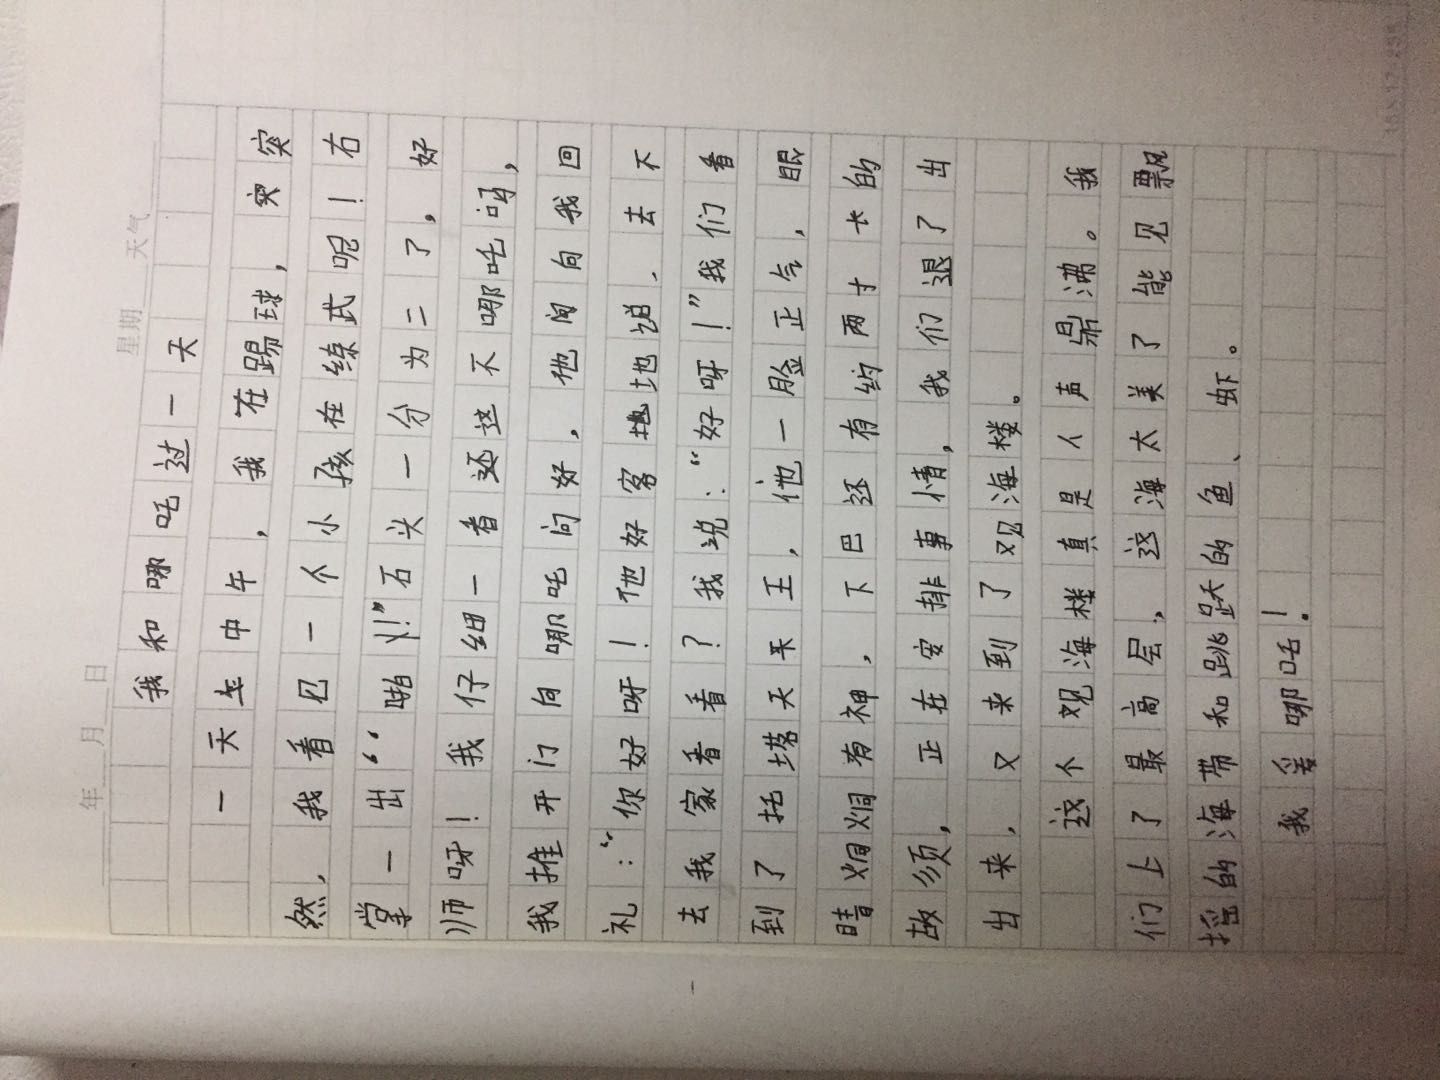 年 月 日 星期 天气
我和哪吒过一天
一天生中午，我在踢球，突突
然，我看见一个小孩在练武呢！右
掌一出“啪!!”石头一分为二了，好
师呀！我仔细一看还这不哪吒吗，
我推开门向哪吒问好，他间向我回
礼：“你好呀！他好客地地说、去不
去我家看看？我说：“好呀！”我们看
到了托塔天王，他一脸正气，眼
睛炯炯有神，下巴还有约两寸长的
故须，正在安排事情，我们退了出
出来，又来到了观海楼。
这个观海楼真是人声鼎沸。我
们上了最高层，这海太美了能见飘
摇的海带和跳跃的鱼、虾。
我爱哪吒！